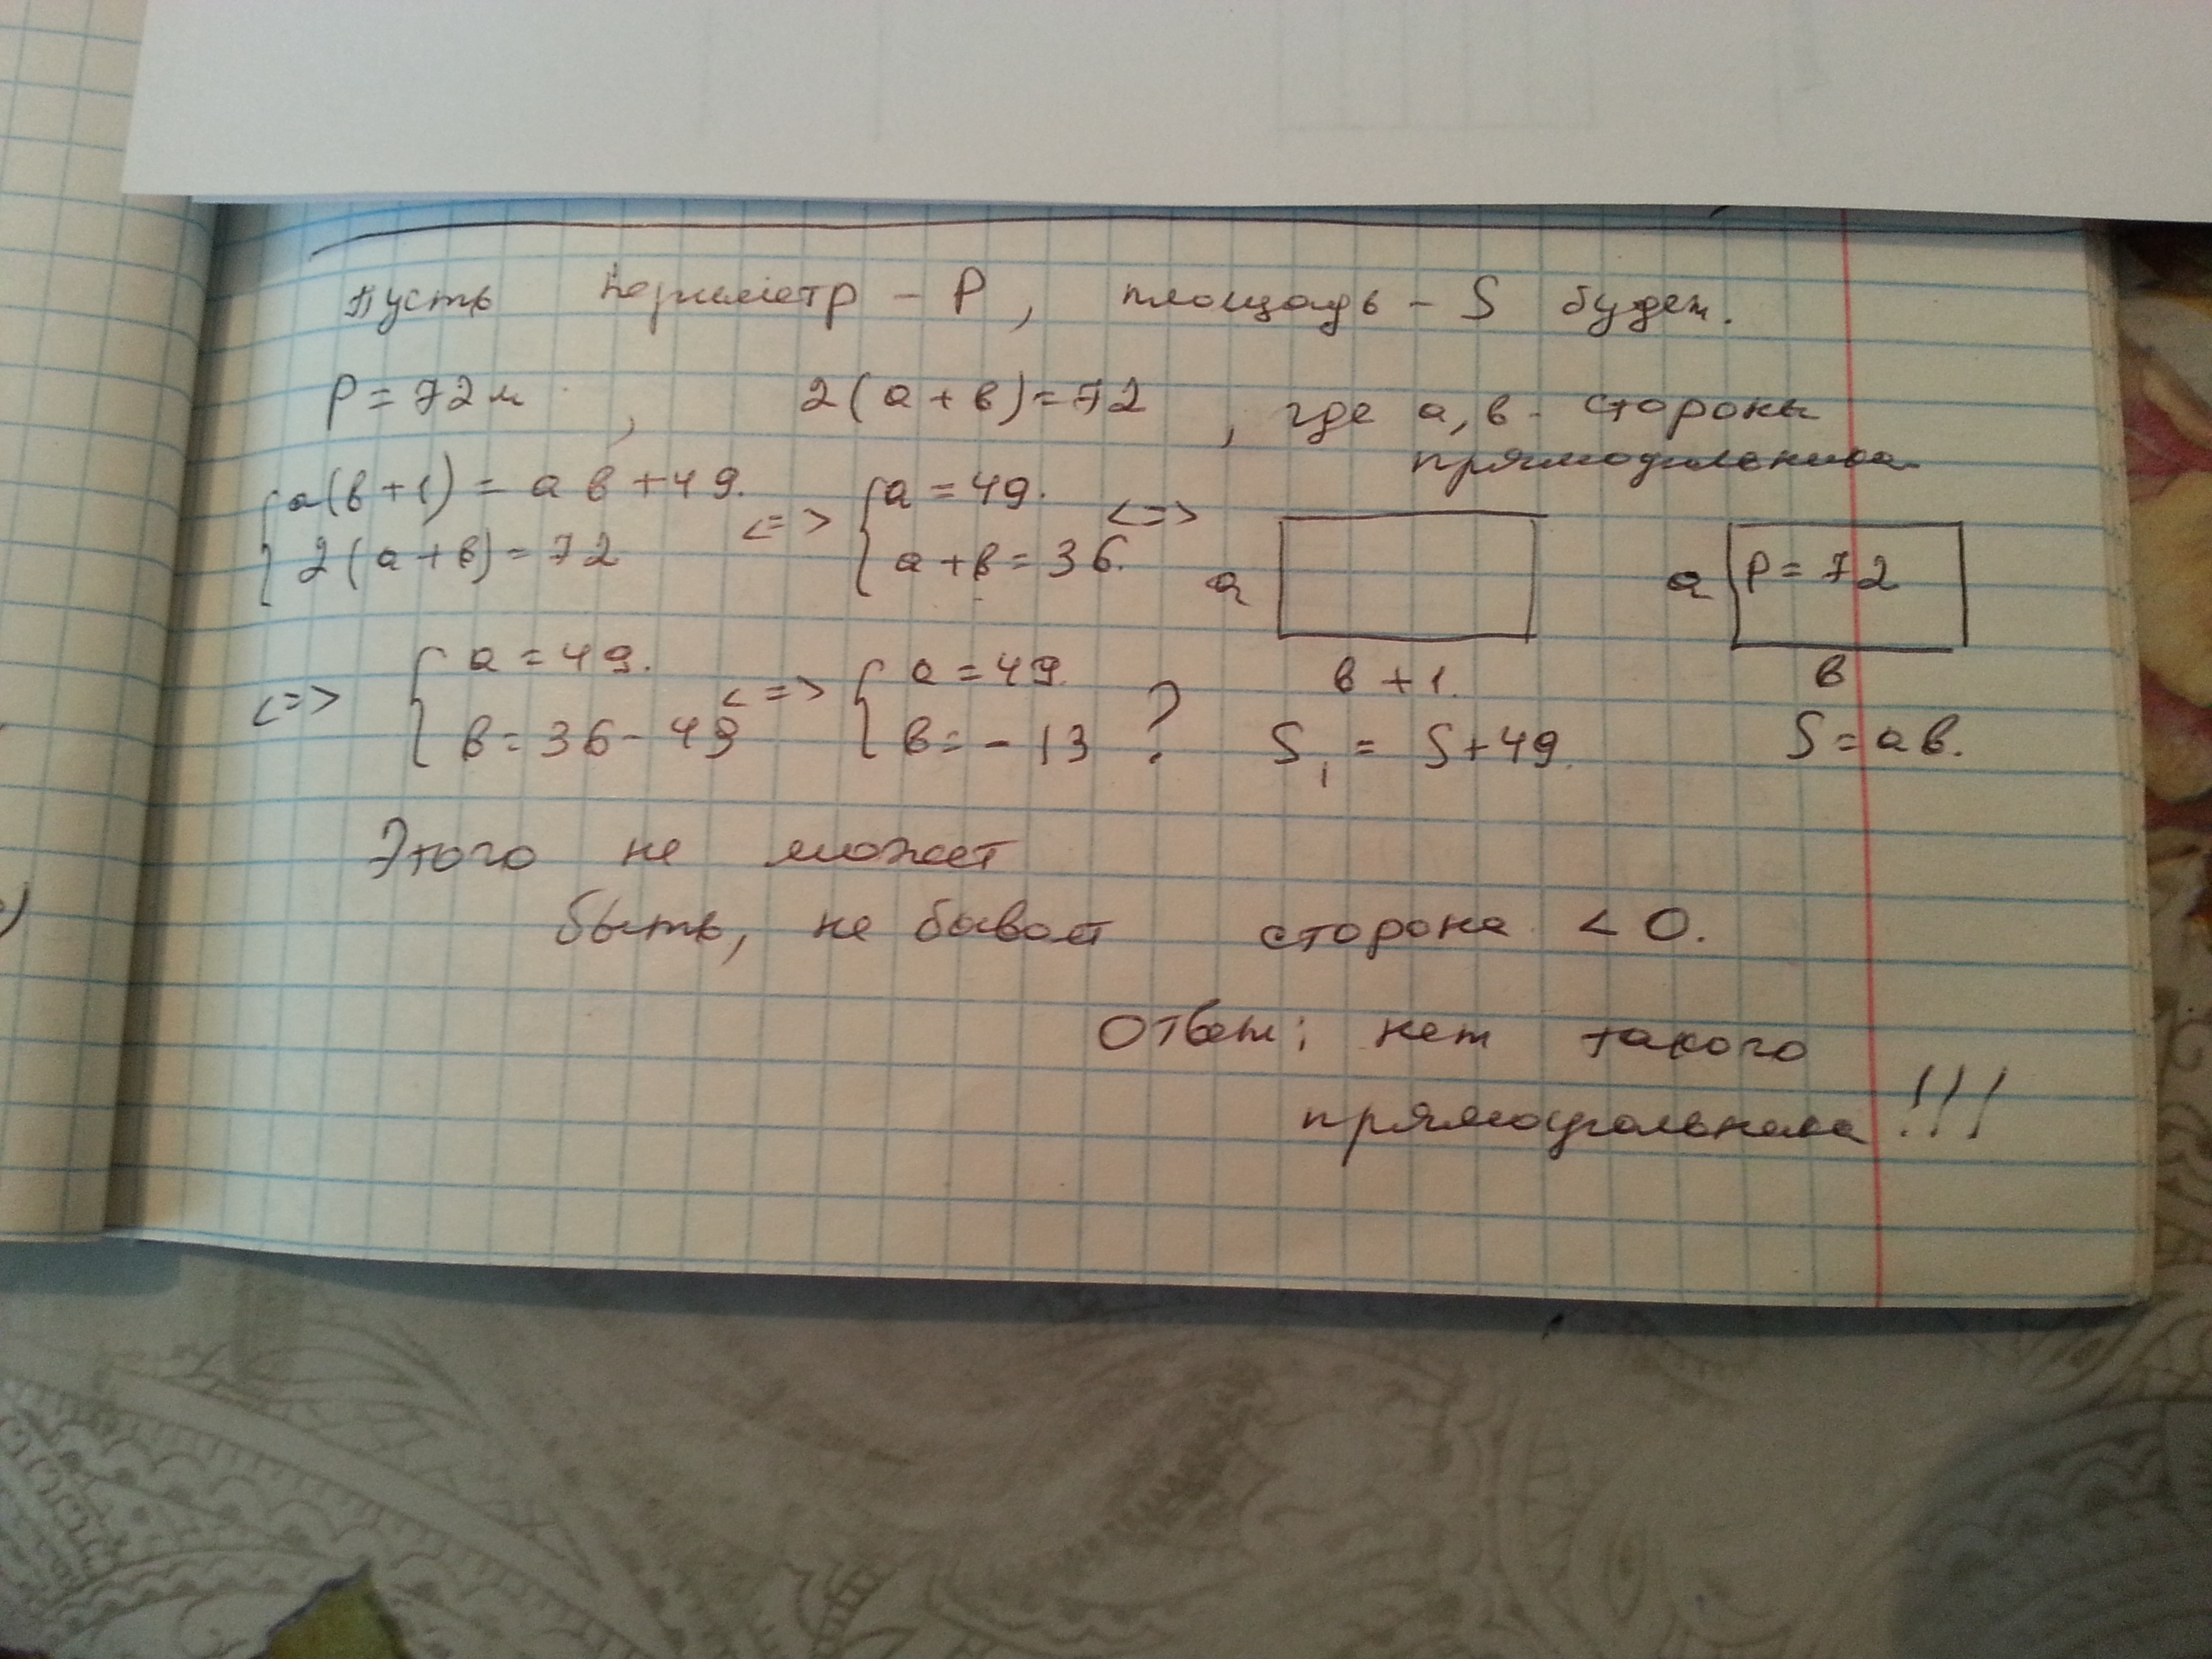 Пусть периметр - P, площадь - S будет.
P = 72 м , 2(a+в)=72 , где a,в - стороны
прямоугольника
{a(в+1) = aв+49. <=> {a = 49. <=>
2(a+в)=72 a+в=36.
a a P = 72
в+1. в
<=> {a = 49. <=> {a = 49. ?
в = 36-49 в = -13 S1 = S+49. S = aв.
Этого не может
быть, не бывает сторона < 0.
Ответ: нет такого
прямоугольника!!!